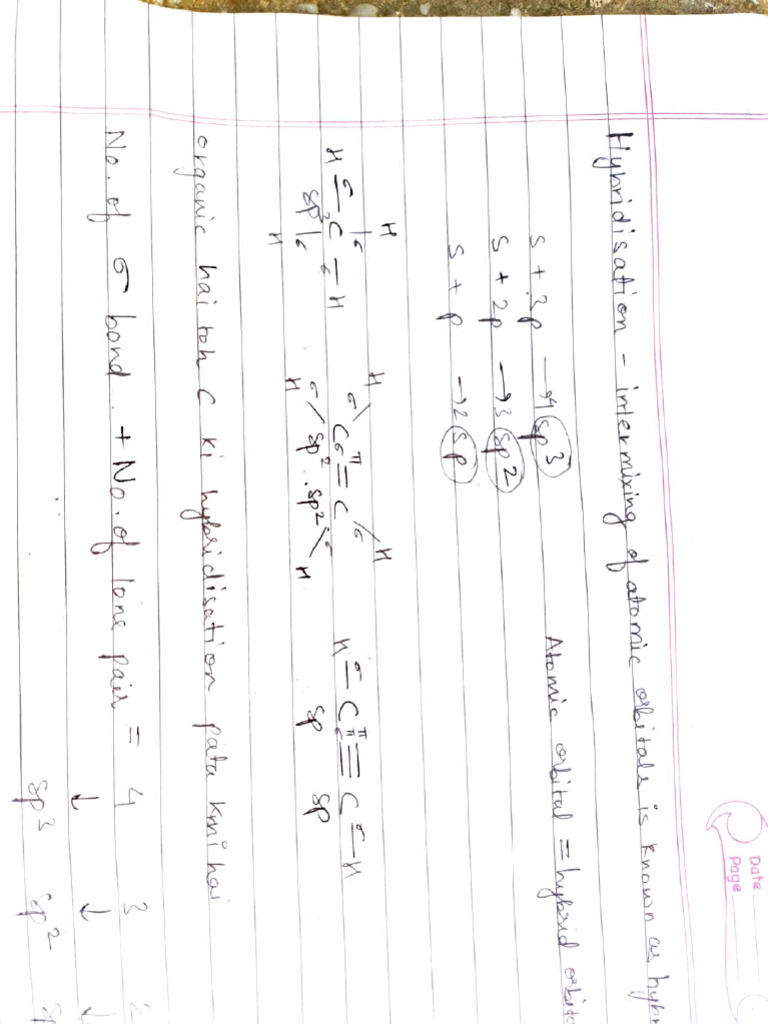 Date
Page
Hybridisation - intermixing of atomic orbitals is known as hybr
Atomic orbital = hybrid orbit
s + 3p → 4 sp3
s + 2p → 3 sp2
s + p → 2 sp
H H H
H σ C σ H H σ C π C σ H H σ C π π C σ H
sp3 σ σ sp2 . sp2 σ sp sp
H H H
organic hai toh C ki hybridisation pata krni hai
No. of σ bond . + No. of lone pair = 4 3 2
↓ ↓ ↓
sp3 sp2 sp